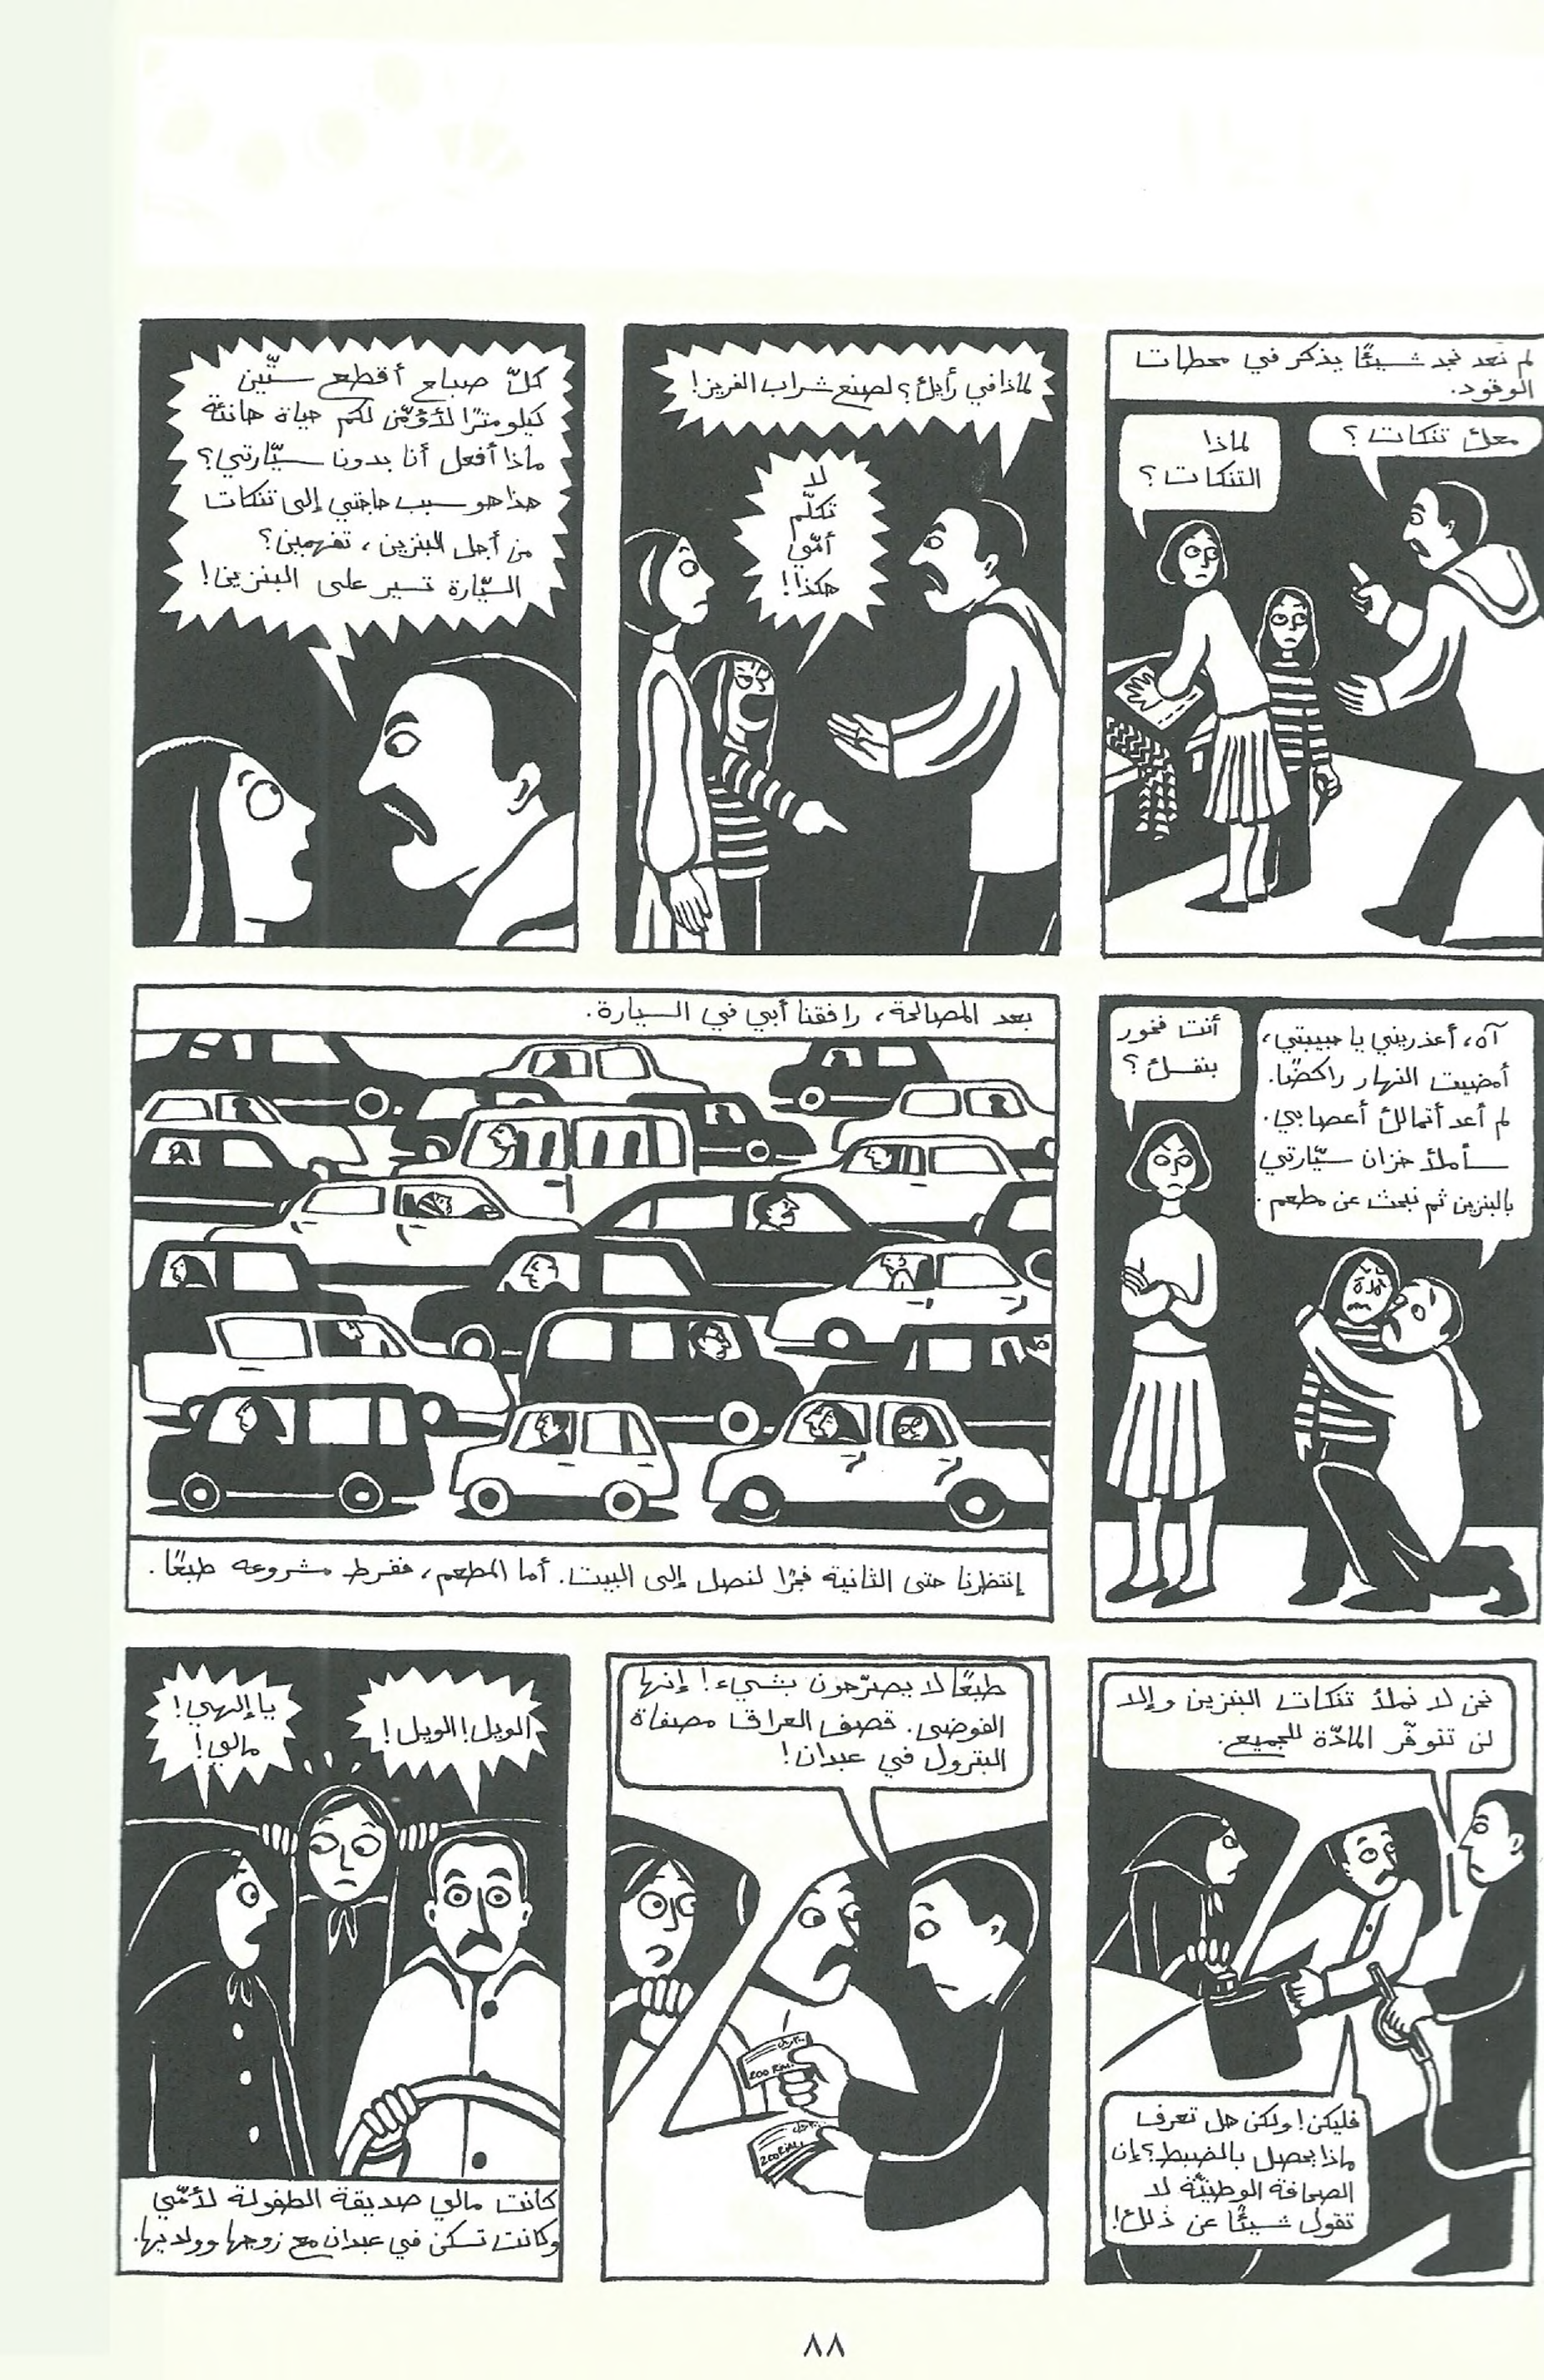 لم نعد نجد شيئًا يذكر في محطات
الوقود.
معك تنكات؟
لماذا
التنكات؟
لماذا في رأيك؟ لصنع شراب الفريز!
لا
تكلّم
أمّي
هكذا!
كلّ صباح أقطع ستّين
كيلومترًا لأؤمّن لكم حياة هانئة
ماذا أفعل أنا بدون سيّارتي؟
هذا هو سبب حاجتي إلى تنكات
من أجل البنزين، تفهمين؟
السيّارة تسير على البنزين!
آه، أعذريني يا حبيبتي،
أمضيت النهار راكضًا.
لم أعد أتمالك أعصابي.
سأملأ خزان سيّارتي
بالبنزين ثم نبحث عن مطعم.
أنت فخور
بنفسك؟
بعد المصالحة، رافقنا أبي في السيارة.
إنتظرنا حتى الثانية فجرًا لنصل إلى البيت. أما المطعم، ففرط مشروعه طبعًا.
نحن لا نملأ تنكات البنزين وإلا
لن تتوفّر المادّة للجميع.
فليكن! ولكن هل تعرف
ماذا يحصل بالضبط؟ إن
الصحافة الوطنيّة لا
تقول شيئًا عن ذلك!
طبعًا لا يصرّحون بشيء! إنها
الفوضى. قصف العراق مصفاة
البترول في عبدان!
200 RIAL
200 RIAL
الويل! الويل!
يا إلهي!
مالي!
كانت مالي صديقة الطفولة لأمّي
وكانت تسكن في عبدان مع زوجها وولديها.
٨٨